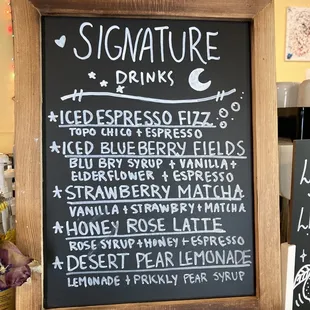 SIGNATURE
DRINKS
*ICED ESPRESSO FIZZ
TOPO CHICO + ESPRESSO
*ICED BLUEBERRY FIELDS
BLU BRY SYRUP + VANILLA +
ELDERFLOWER + ESPRESSO
*STRAWBERRY MATCHA
VANILLA + STRAWBRY + MATCHA
*HONEY ROSE LATTE
ROSE SYRUP + HONEY + ESPRESSO
*DESERT PEAR LEMONADE
LEMONADE + PRICKLY PEAR SYRUP